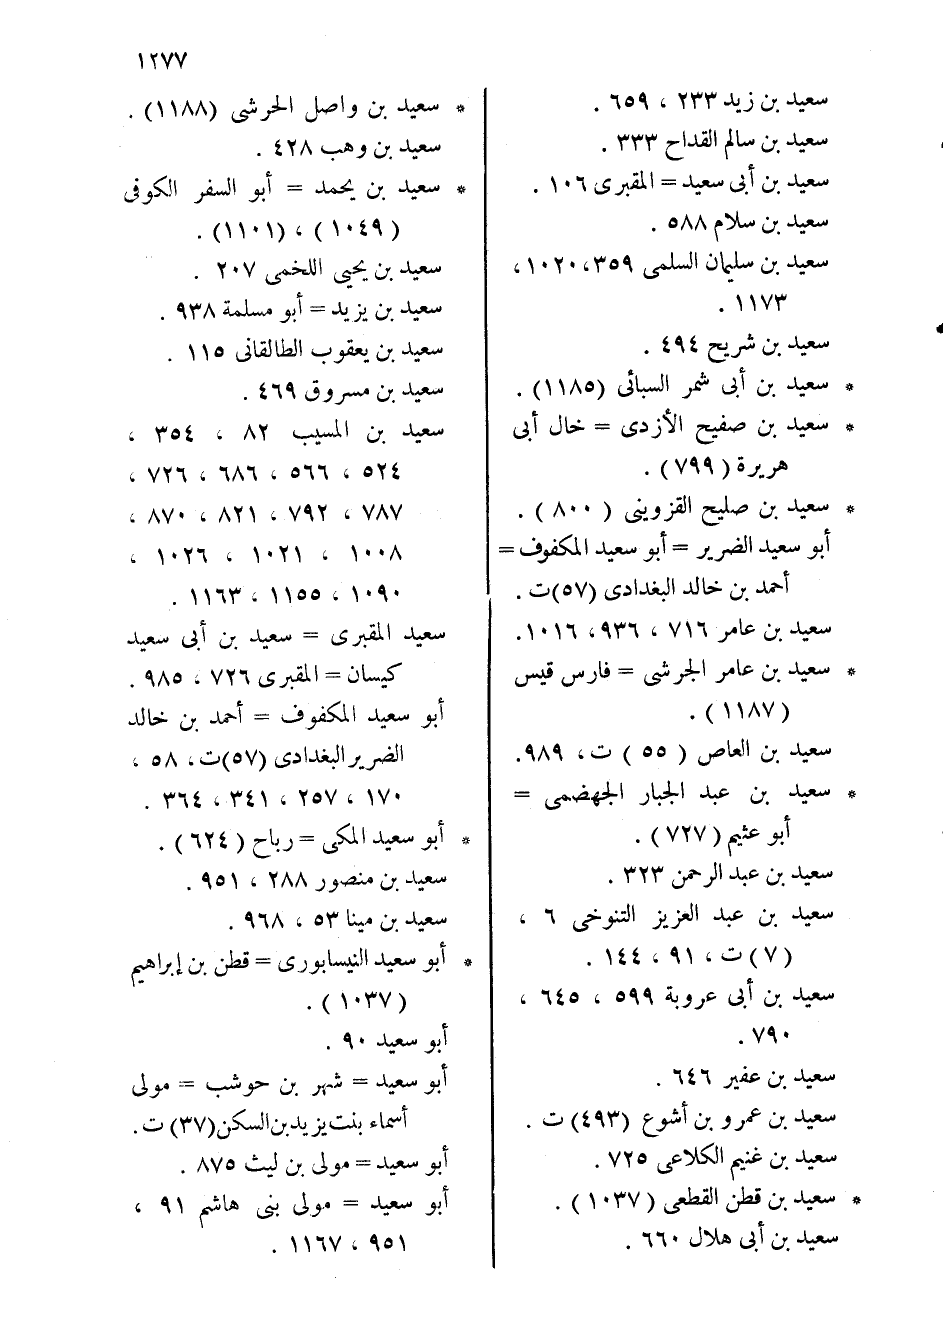 ١٢٧٧
سعيد بن زيد ٢٣٣ ، ٦٥٩ .
سعيد بن سالم القداح ٣٣٣ .
سعيد بن أبى سعيد = المقبرى ١٠٦ .
سعيد بن سلام ٥٨٨ .
سعيد بن سليمان السلمى ٣٥٩، ١٠٢٠ ،
١١٧٣ .
سعيد بن شريح ٤٩٤ .
* سعيد بن أبى شمر السبائى (١١٨٥) .
* سعيد بن صفيح الأزدى = خال أبى
هريرة (٧٩٩) .
* سعيد بن صليح القزوينى ( ٨٠٠ ) .
أبو سعيد الضرير = أبو سعيد المكفوف =
أحمد بن خالد البغدادى (٥٧)ت .
سعيد بن عامر ٧١٦ ، ٩٣٦، ١٠١٦.
* سعيد بن عامر الجرشى = فارس قيس
(١١٨٧) .
سعيد بن العاص ( ٥٥ ) ت، ٩٨٩.
* سعيد بن عبد الجبار الجهضمى =
أبو عثيم (٧٢٧) .
سعيد بن عبد الرحمن ٣٢٣ .
سعيد بن عبد العزيز التنوخى ٦ ،
(٧) ت ، ٩١ ، ١٤٤ .
سعيد بن أبى عروبة ٥٩٩ ، ٦٤٥ ،
٧٩٠ .
سعيد بن عفير ٦٤٦ .
سعيد بن عمرو بن أشوع (٤٩٣) ت .
سعيد بن غنيم الكلاعى ٧٢٥ .
* سعيد بن قطن القطعى (١٠٣٧) .
سعيد بن أبى هلال ٦٦٠ .
* سعيد بن واصل الحرشى (١١٨٨) .
سعيد بن وهب ٤٢٨ .
* سعيد بن يحمد = أبو السفر الكوفى
(١٠٤٩) ، (١١٠١) .
سعيد بن يحيى اللخمى ٢٠٧ .
سعيد بن يزيد = أبو مسلمة ٩٣٨ .
سعيد بن يعقوب الطالقانى ١١٥ .
سعيد بن مسروق ٤٦٩ .
سعيد بن المسيب ٨٢ ، ٣٥٤ ،
٥٢٤ ، ٥٦٦ ، ٦٨٦ ، ٧٢٦ ،
٧٨٧ ، ٧٩٢ ، ٨٢١ ، ٨٧٠ ،
١٠٠٨ ، ١٠٢١ ، ١٠٢٦ ،
١٠٩٠ ، ١١٥٥ ، ١١٦٣ .
سعيد المقبرى = سعيد بن أبى سعيد
كيسان = المقبرى ٧٢٦ ، ٩٨٥ .
أبو سعيد المكفوف = أحمد بن خالد
الضرير البغدادى (٥٧)ت ، ٥٨ ،
١٧٠ ، ٢٥٧ ، ٣٤١ ، ٣٦٤ .
* أبو سعيد المكى = رباح (٦٢٤) .
سعيد بن منصور ٢٨٨ ، ٩٥١ .
سعيد بن مينا ٥٣ ، ٩٦٨ .
* أبو سعيد النيسابورى = قطن بن إبراهيم
(١٠٣٧) .
أبو سعيد ٩٠ .
أبو سعيد = شهر بن حوشب = مولى
أسماء بنت يزيد بن السكن (٣٧) ت .
أبو سعيد = مولى بن ليث ٨٧٥ .
أبو سعيد = مولى بنى هاشم ٩١ ،
٩٥١ ، ١١٦٧ .